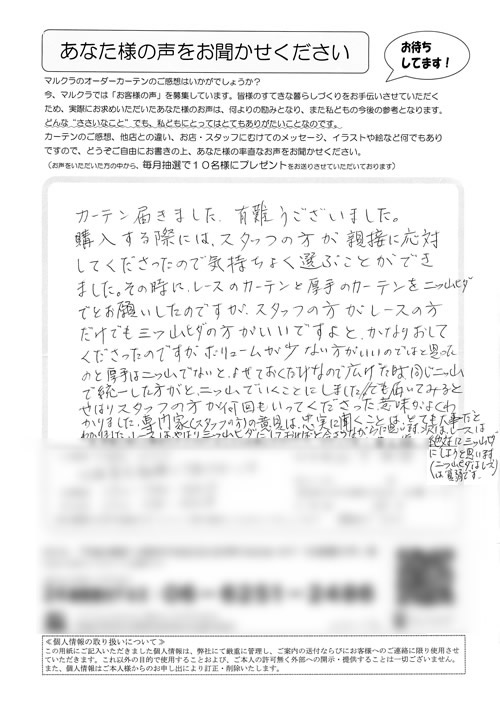 あなた様の声をお聞かせください
お待ち
してます！
マルクラのオーダーカーテンのご感想はいかがでしょうか？
今、マルクラでは「お客様の声」を募集しています。皆様のすてきな暮らしづくりをお手伝いさせていただく
ため、実際にお求めいただいたあなた様のお声は、何よりの励みとなり、また私どもの今後の参考となります。
どんな“ささいなこと”でも、私どもにとってはとてもありがたいことなのです。
カーテンのご感想、他店との違い、お店・スタッフにむけてのメッセージ、イラストや絵など何でもあり
ですので、どうぞご自由にお書きの上、あなた様の率直なお声をお聞かせください。
（お声をいただいた方の中から、毎月抽選で１０名様にプレゼントをお送りさせていただいております）
カーテン届きました。有難うございました。
購入する際には、スタッフの方が親接に応対
してくださったので気持ちよく選ぶことができ
ました。その時に、レースのカーテンと厚手のカーテンを二ッ山ヒダ
でとお願いしたのですが、スタッフの方がレースの方
だけでも三ッ山ヒダの方がいいですよと、かなりおして
くださったのですがボリュームが少ない方がいいのではと思った
のと厚手は二ッ山でないと、よせておくだけなので広げた時同じ二ッ山
で統一した方がと、二ッ山でいくことにしました。でも届いてみると
やはりスタッフの方が何回もいってくださった意味がよくわ
かりました。専門家(スタッフの方)の意見は、忠実に聞くことは、とても大事だと
絶対に三ッ山ヒダ
にしようと思います
(二ッ山ヒダはレース)
は
06-6251-2486
≪個人情報の取り扱いについて≫
この用紙にご記入いただきました個人情報は、弊社にて厳重に管理し、ご案内の送付ならびにお客様へのご連絡に限り使用させ
ていただきます。これ以外の目的で使用することおよび、ご本人の許可無く外部への開示・提供することは一切ございません。
また、個人情報はご本人様からのお申し出により訂正・削除いたします。